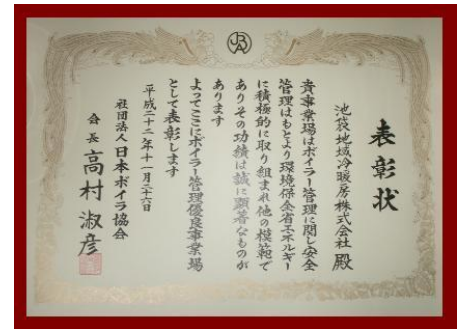 表彰状
池袋地域冷暖房株式会社 殿
貴事業場はボイラー管理に関し安全
管理はもとより環境保全省エネルギー
に積極的に取り組まれ他の模範で
ありその功績は誠に顕著なものが
あります
よってここにボイラー管理優良事業場
として表彰します
平成二十二年十一月二十六日
社団法人 日本ボイラ協会
会長 高村淑彦